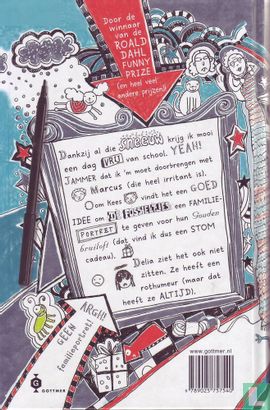 Door de
winnaar
van de
ROALD
DAHL
FUNNY
PRIZE
(en heel veel
andere prijzen!)
Dankzij al die SNEEUW krijg ik mooi
een dag VRIJ van school. YEAH!
JAMMER dat ik 'm moet doorbrengen met
Marcus (die heel irritant is).
Oom Kees vindt het een GOED
IDEE om DE FOSSIELTJES een FAMILIE-
PORTRET te geven voor hun Gouden
bruiloft (dat vind ik dus een STOM
cadeau). Delia ziet het ook niet
zitten. Ze heeft een
rothumeur (maar dat
heeft ze ALTIJD).
ARGH!
GEEN
familieportret!
G
GOTTMER
www.gottmer.nl
9 789025 757540